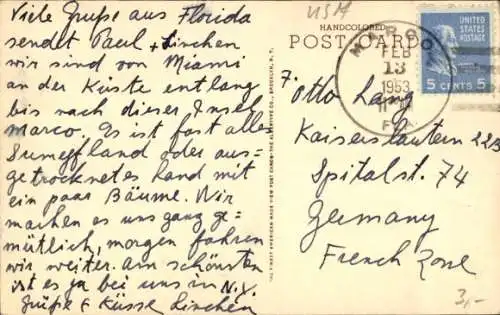 Viele Grüße aus Florida
sendet Paul + Lieschen
wir sind von Miami
an der Küste entlang
bis nach dieser Insel
Marco. Es ist fast alles
Sumpfland oder aus-
getrocknetes Land mit
ein paar Bäume. Wir
machen es uns ganz ge-
mütlich, morgen fahren
wir weiter. Am schönsten
ist es ja bei uns in N.Y.
Grüße & Küsse Lieschen
USA
HANDCOLORED
POST CARD
MARCO
FEB
13
1953
FLA
UNITED
STATES
POSTAGE
5 CENTS 5
Otto Lang
Kaiserslautern 22B
Spitalst. 74
Germany
French Zone
3,-